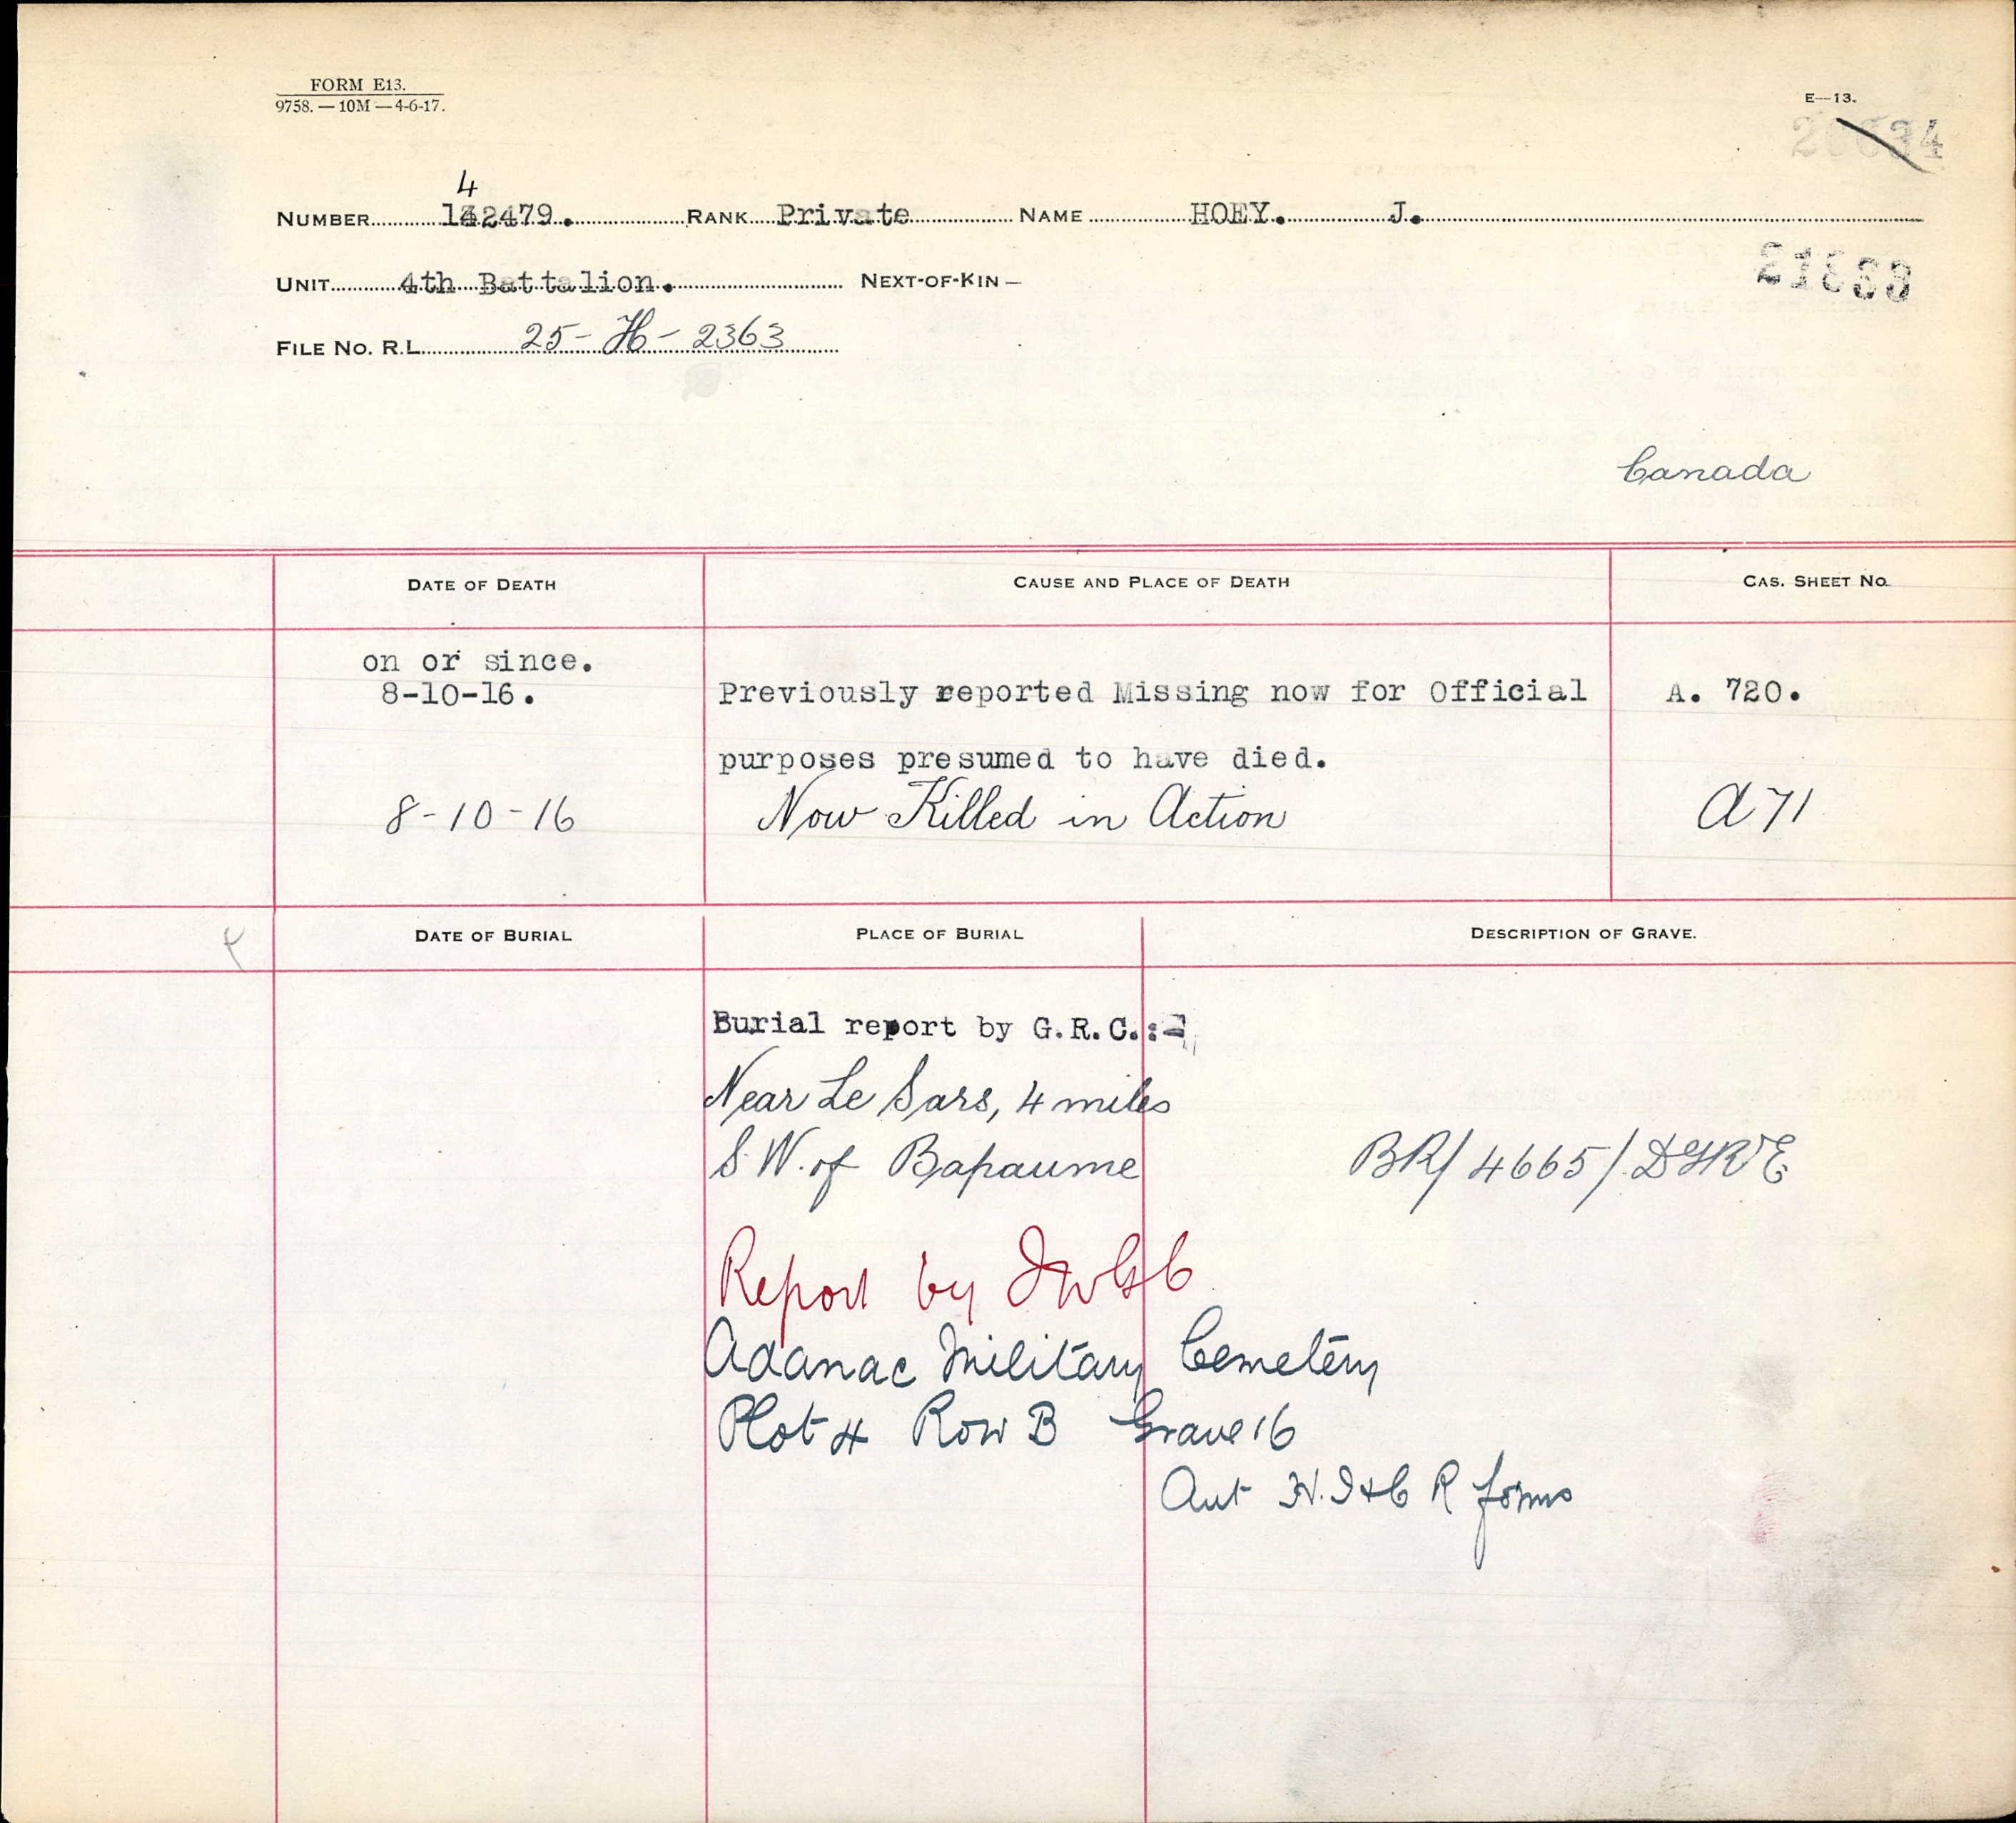 FORM E13.
9758. — 10M — 4-6-17.
E—13.
4
NUMBER 142479. RANK Private NAME HOEY. J.
UNIT 4th Battalion. NEXT-OF-KIN —
FILE NO. R.L. 25-H-2363
Canada
DATE OF DEATH CAUSE AND PLACE OF DEATH CAS. SHEET NO.
on or since.
8-10-16. Previously reported Missing now for Official A. 720.
purposes presumed to have died.
8-10-16 Now Killed in Action A 71
DATE OF BURIAL PLACE OF BURIAL DESCRIPTION OF GRAVE.
Burial report by G.R.C.:-
Near Le Sars, 4 miles
S.W. of Bapaume BR/4665/DGRE
Report by IWGC
Adanac Military Cemetery
Plot 4 Row B Grave 16
Aut H.I&C R forms